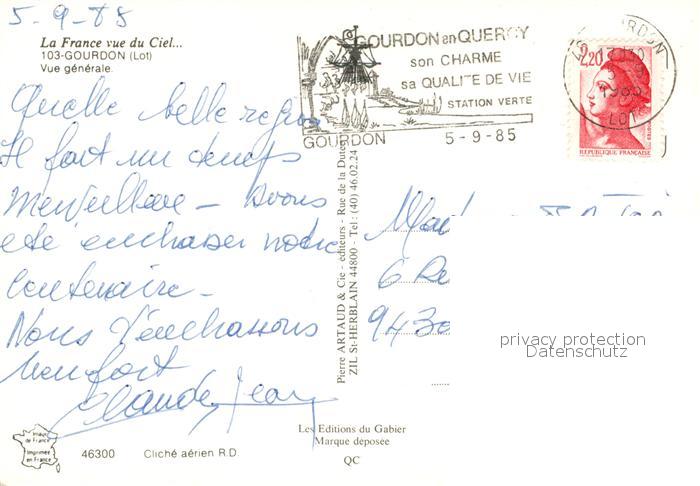 5-9-85
La France vue du Ciel...
103-GOURDON (Lot)
Vue générale.
GOURDON en QUERCY
son CHARME
sa QUALITE DE VIE
STATION VERTE
GOURDON 5-9-85
GOURDON
5-9
1985
LOT
2,20
REPUBLIQUE FRANÇAISE
Quelle belle region
Il fait un temps
merveilleux - Avons
été
centenaire -
Nous t'embrassons
bien fort
Claude Jean
Pierre ARTAUD & Cie - éditeurs - Rue de la Dutée
ZIL St-HERBLAIN 44800 - Tel : (40) 46.02.24
6 Re
9430
privacy protection
Datenschutz
Images
de France
Imprimée
en France
46300 Cliché aérien R.D.
Les Editions du Gabier
Marque déposée
QC